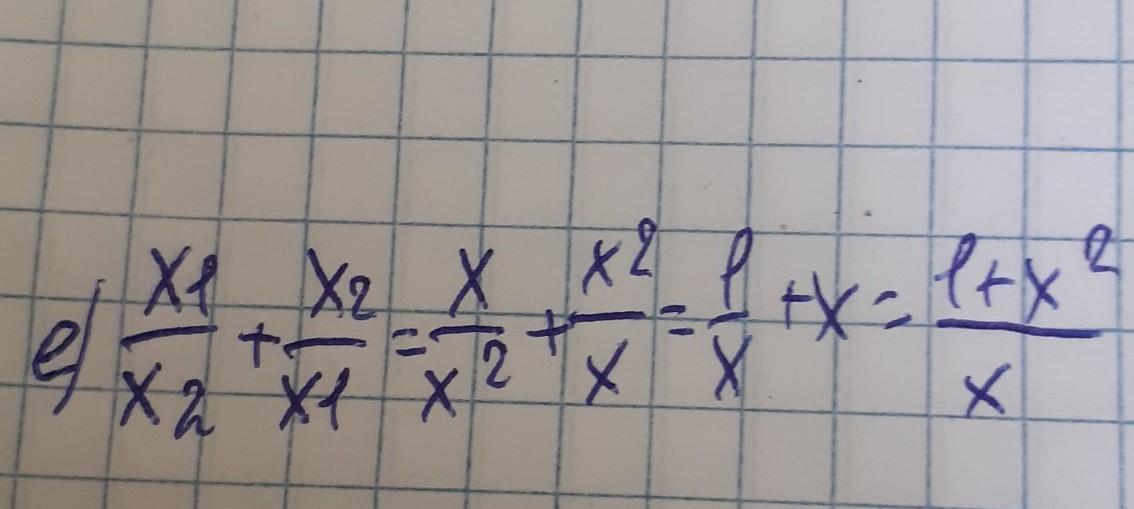 e) x1/x2 + x2/x1 = x/x² + x²/x = 1/x + x = 1+x²/x